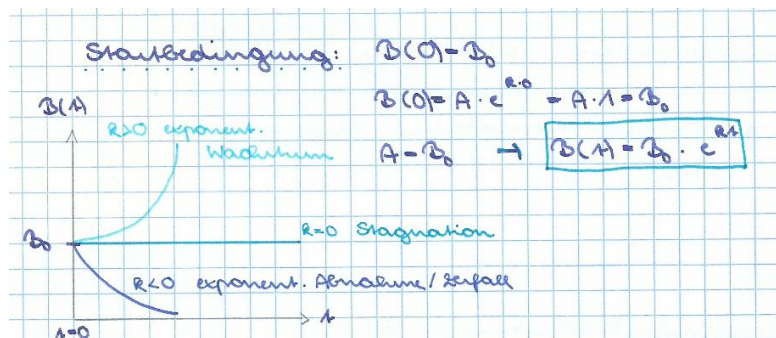 Startbedingung: B(0) = B₀
B(0) = A · e^(k·0) = A · 1 = B₀
A = B₀ → B(t) = B₀ · e^(kt)
B(t)
k>0 exponent.
Wachstum
B₀
k=0 Stagnation
k<0 exponent. Abnahme/Zerfall
t
t=0